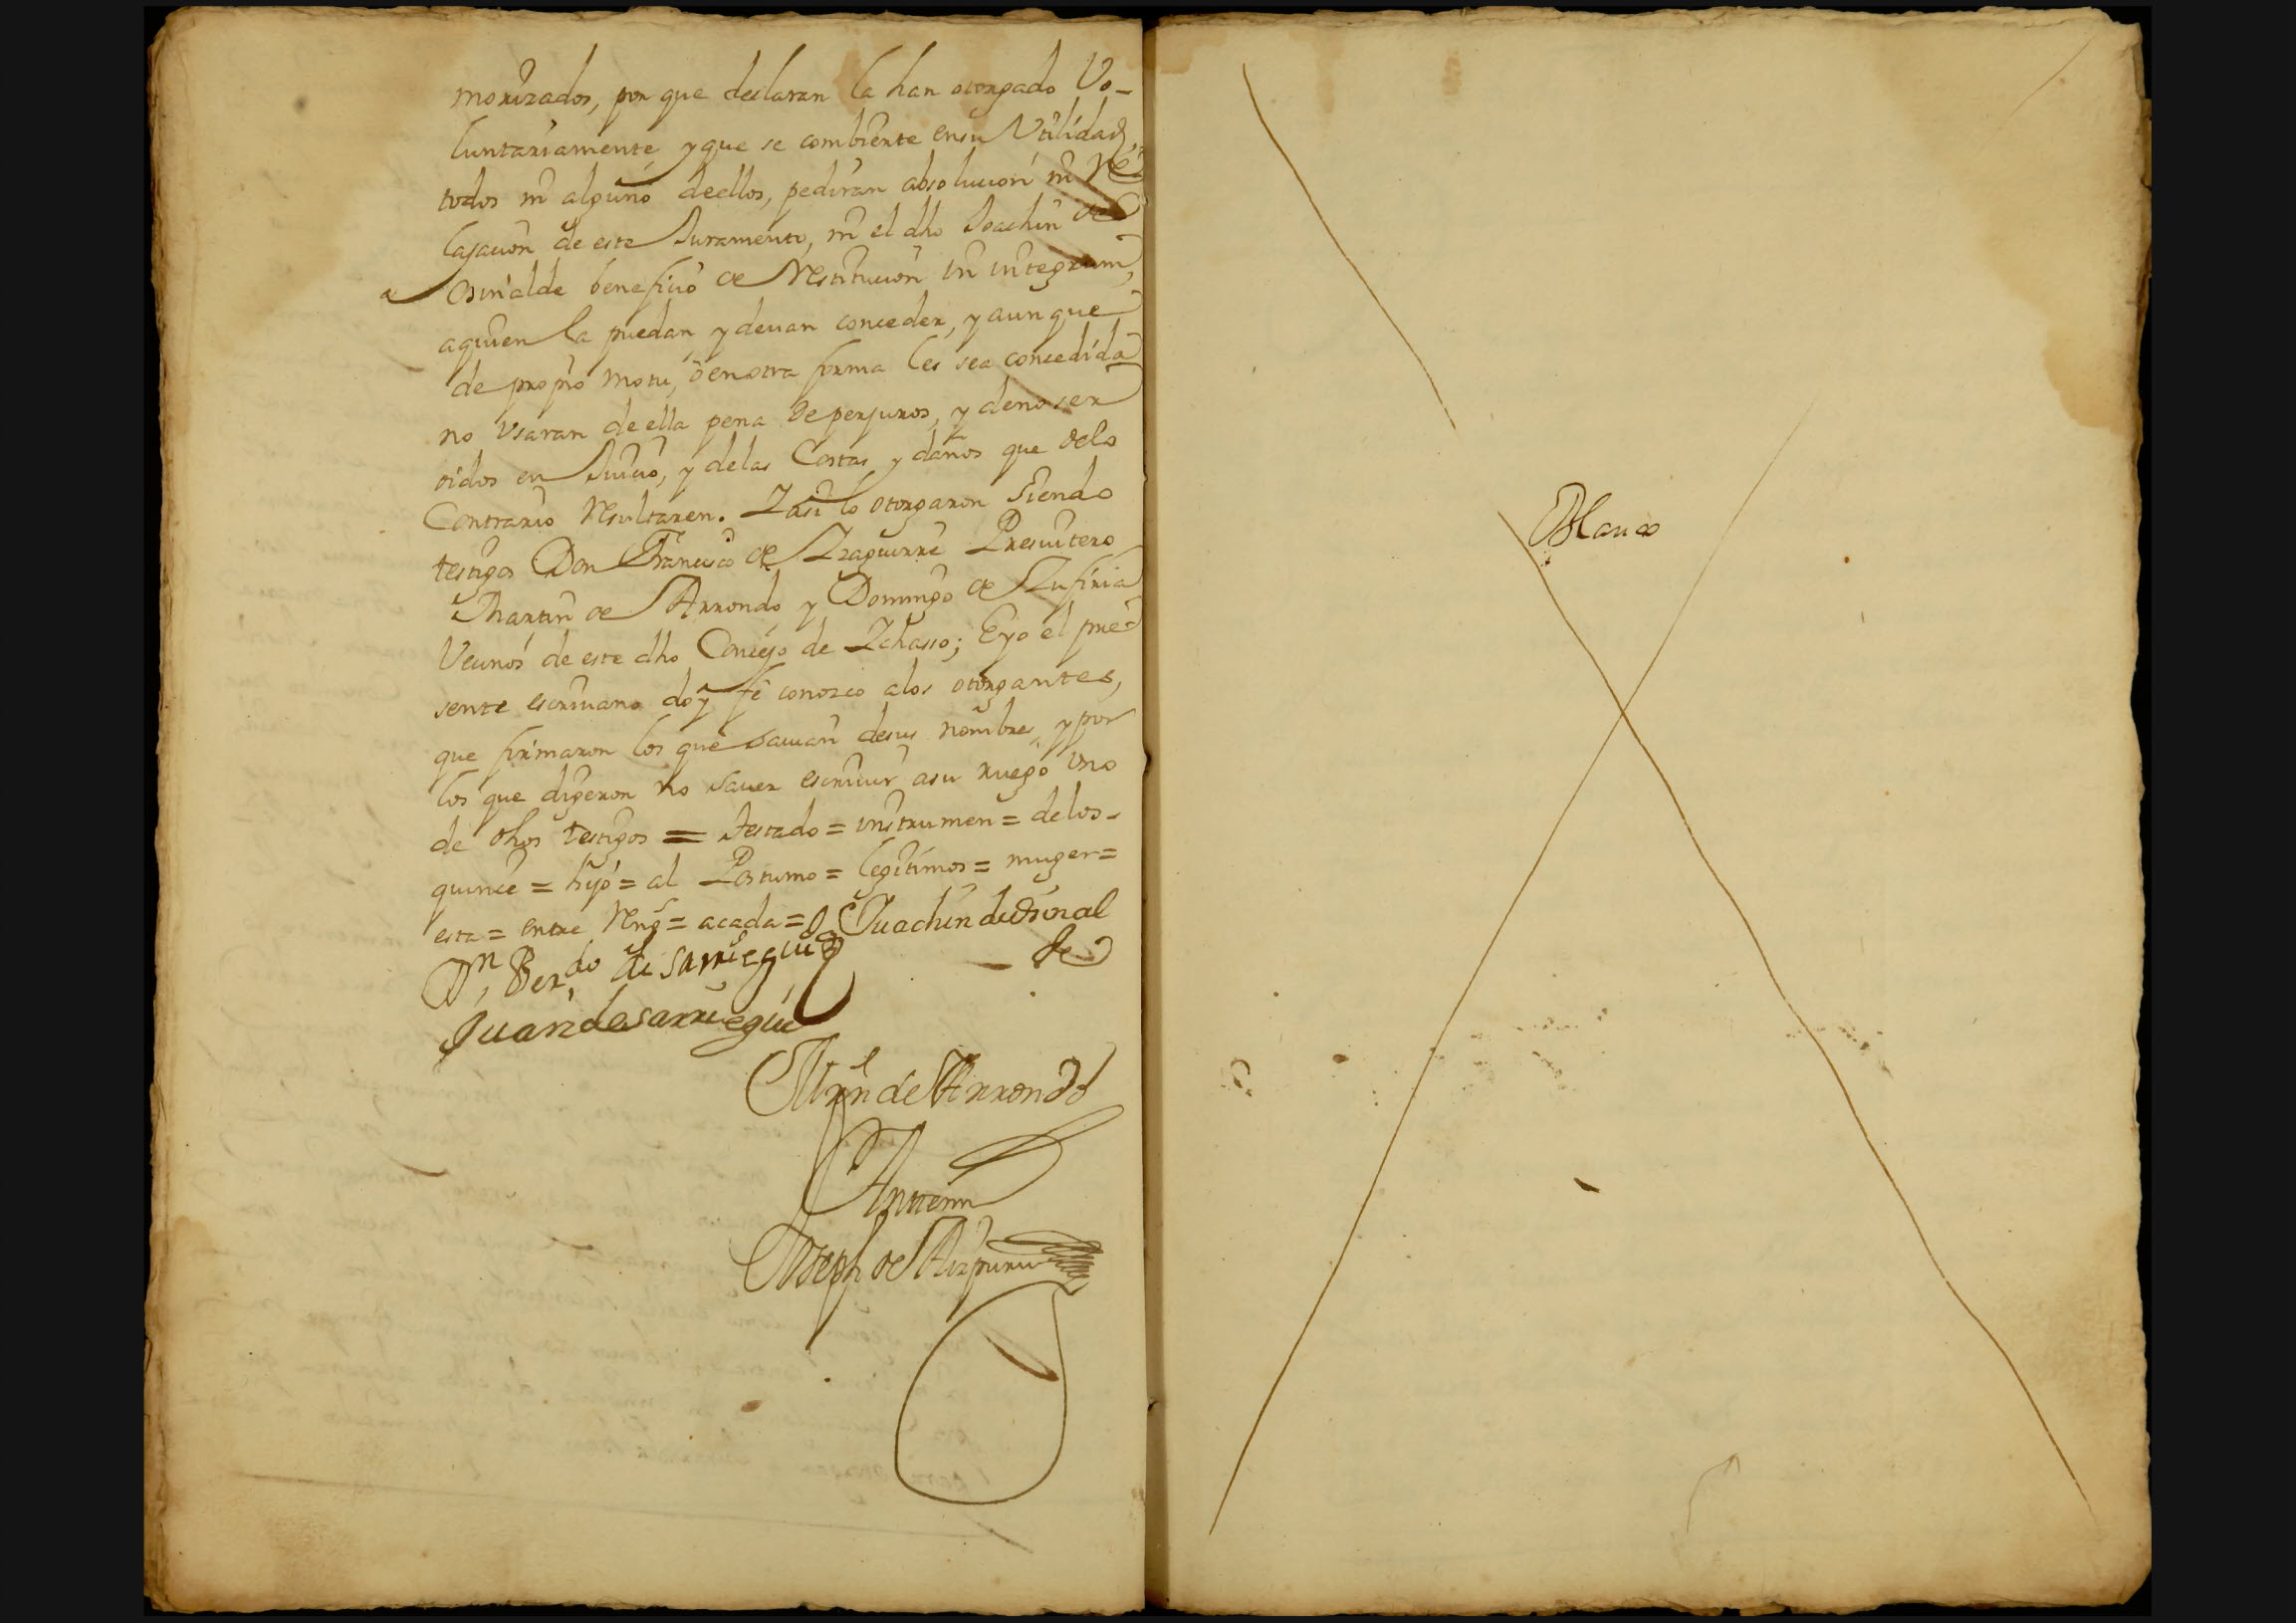 morizados, por que declaran la han otorgado Vo-
luntariamente, y que se combierte ensu Vtilidad,
todos ni alguno deellos, pediran absolucion ni Re
lajacion de este Juramento, ni el dho Joachin de
Osinalde beneficio de Restitucion in integrum,
aquien la puedan y deuan conceder, y aunque
de propio motu, o enotra forma les sea concedida
no Vsaran de ella pena de perjuros, y deno ser
oidos en Juicio, y delas Costas y daños que delo
Contrario Resultaren. Y asi lo otorgaron siendo
testigos Don Francisco de Yzaguirre Presuitero
Martin de Arrondo, y Domingo de Zufiria
Vecinos de este dho Concejo de Ychasso; E yo el pre
sente escriuano doy fe conozco alos otorgantes,
que firmaron los que sauian desus nombres, y por
los que digeron no sauer escriuir asu ruego vno
de dhos testigos = testado = instrumen = delos =
quince = hijo = al Postumo = legitimos = muger =
esta = entre Rengs = acada =
Juachin de Osinal
de
Dn, Berdo de Sarriegui
Juan de Sarriegui
Mrn de Arrondo
Antemi
Joseph de Aizpuru
Blanco